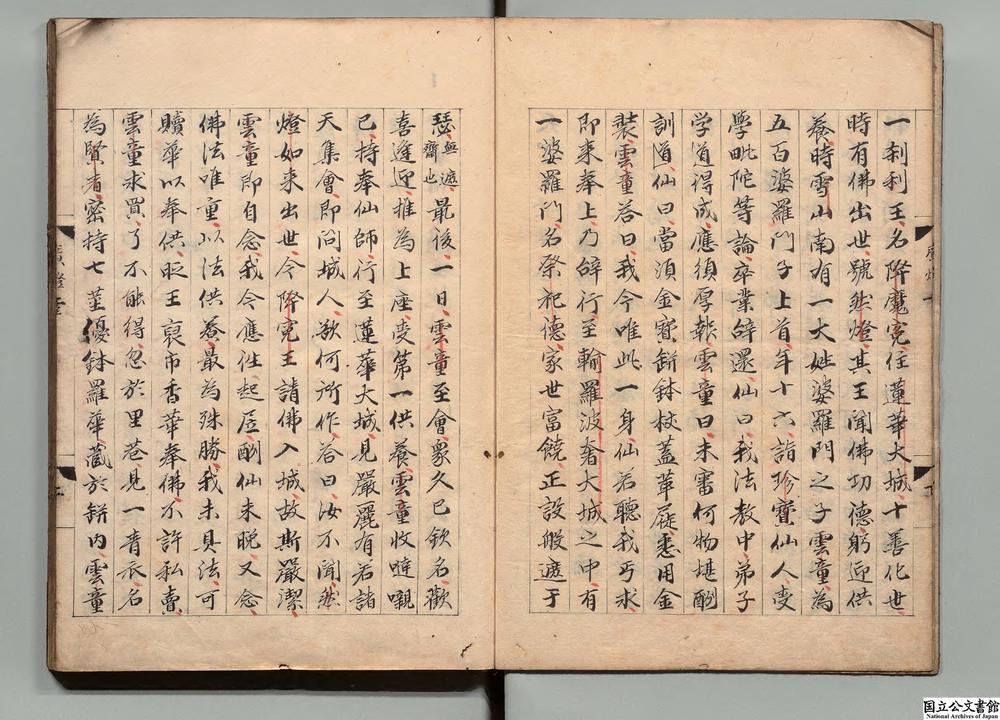 一刹利王名降魔寃住蓮華大城十善化世
時有佛出世號然燈其王聞佛功德躬迎供
養時雪山南有一大姓婆羅門之子雲童為
五百婆羅門子上首年十六詣珍寶仙人受
學毗陀等論卒業辞還仙曰我法教中弟子
学道得成應須厚報雲童曰未審何物堪酬
訓道仙曰當須金寶缾鉢杖蓋革屣悉用金
裝雲童荅曰我今唯此一身仙若聽我丐求
即来奉上乃辞行至輸羅波奢大城之中有
一婆羅門名祭祀德家世富饒正設般遮于
瑟無遮齋也最後一日雲童至會眾久已欽名歡
喜逢迎推為上座受第一供養雲童收噠嚫
已持奉仙師行至蓮華大城見嚴麗有若諸
天集會即問城人欲何所作荅曰汝不聞然
燈如来出世今降寃王請佛入城故斯嚴潔
雲童即自念我今應往起居酬仙未晚又念
佛法唯重以法供養最為殊勝我未具法可
贖華以奉供是王裒市香華奉佛不許私賣
雲童求買了不能得忽於里巷見一青衣名
為賢者密持七莖優鉢羅華藏於缾内雲童
廣燈